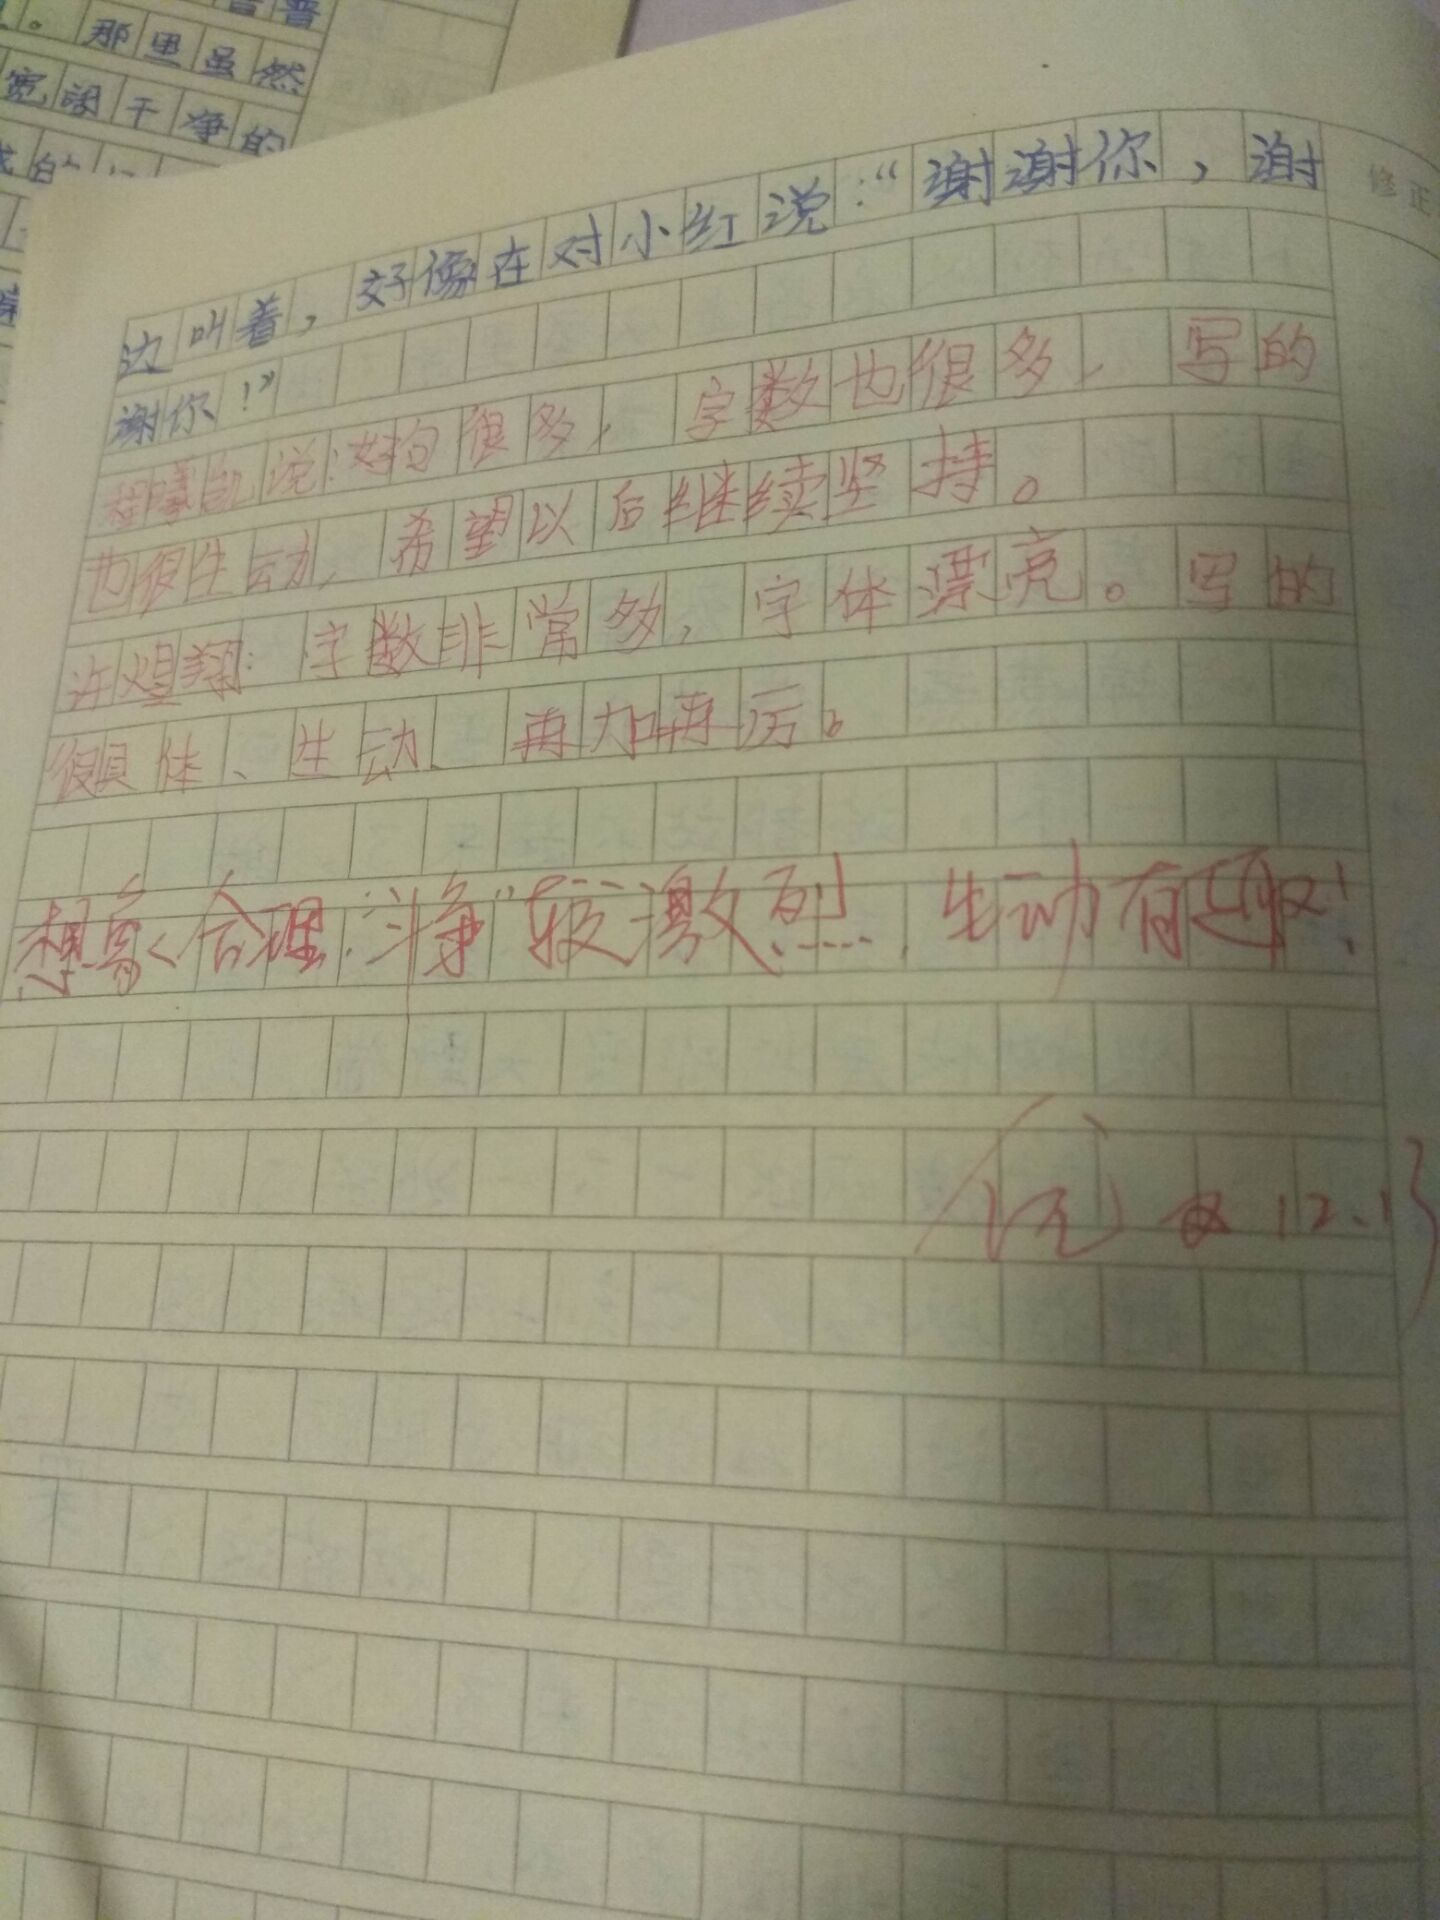 普
。那里虽然
宽阔干净的
边叫着，好像在对小红说：“谢谢你，谢
谢你！”
程曦凯说：好句很多，字数也很多，写的
也很生动，希望以后继续坚持。
许煜翔：字数非常多，字体漂亮。写的
很具体、生动、再加再厉。
想象合理，“斗争”较激烈，生动有趣！
优 12.13
修正